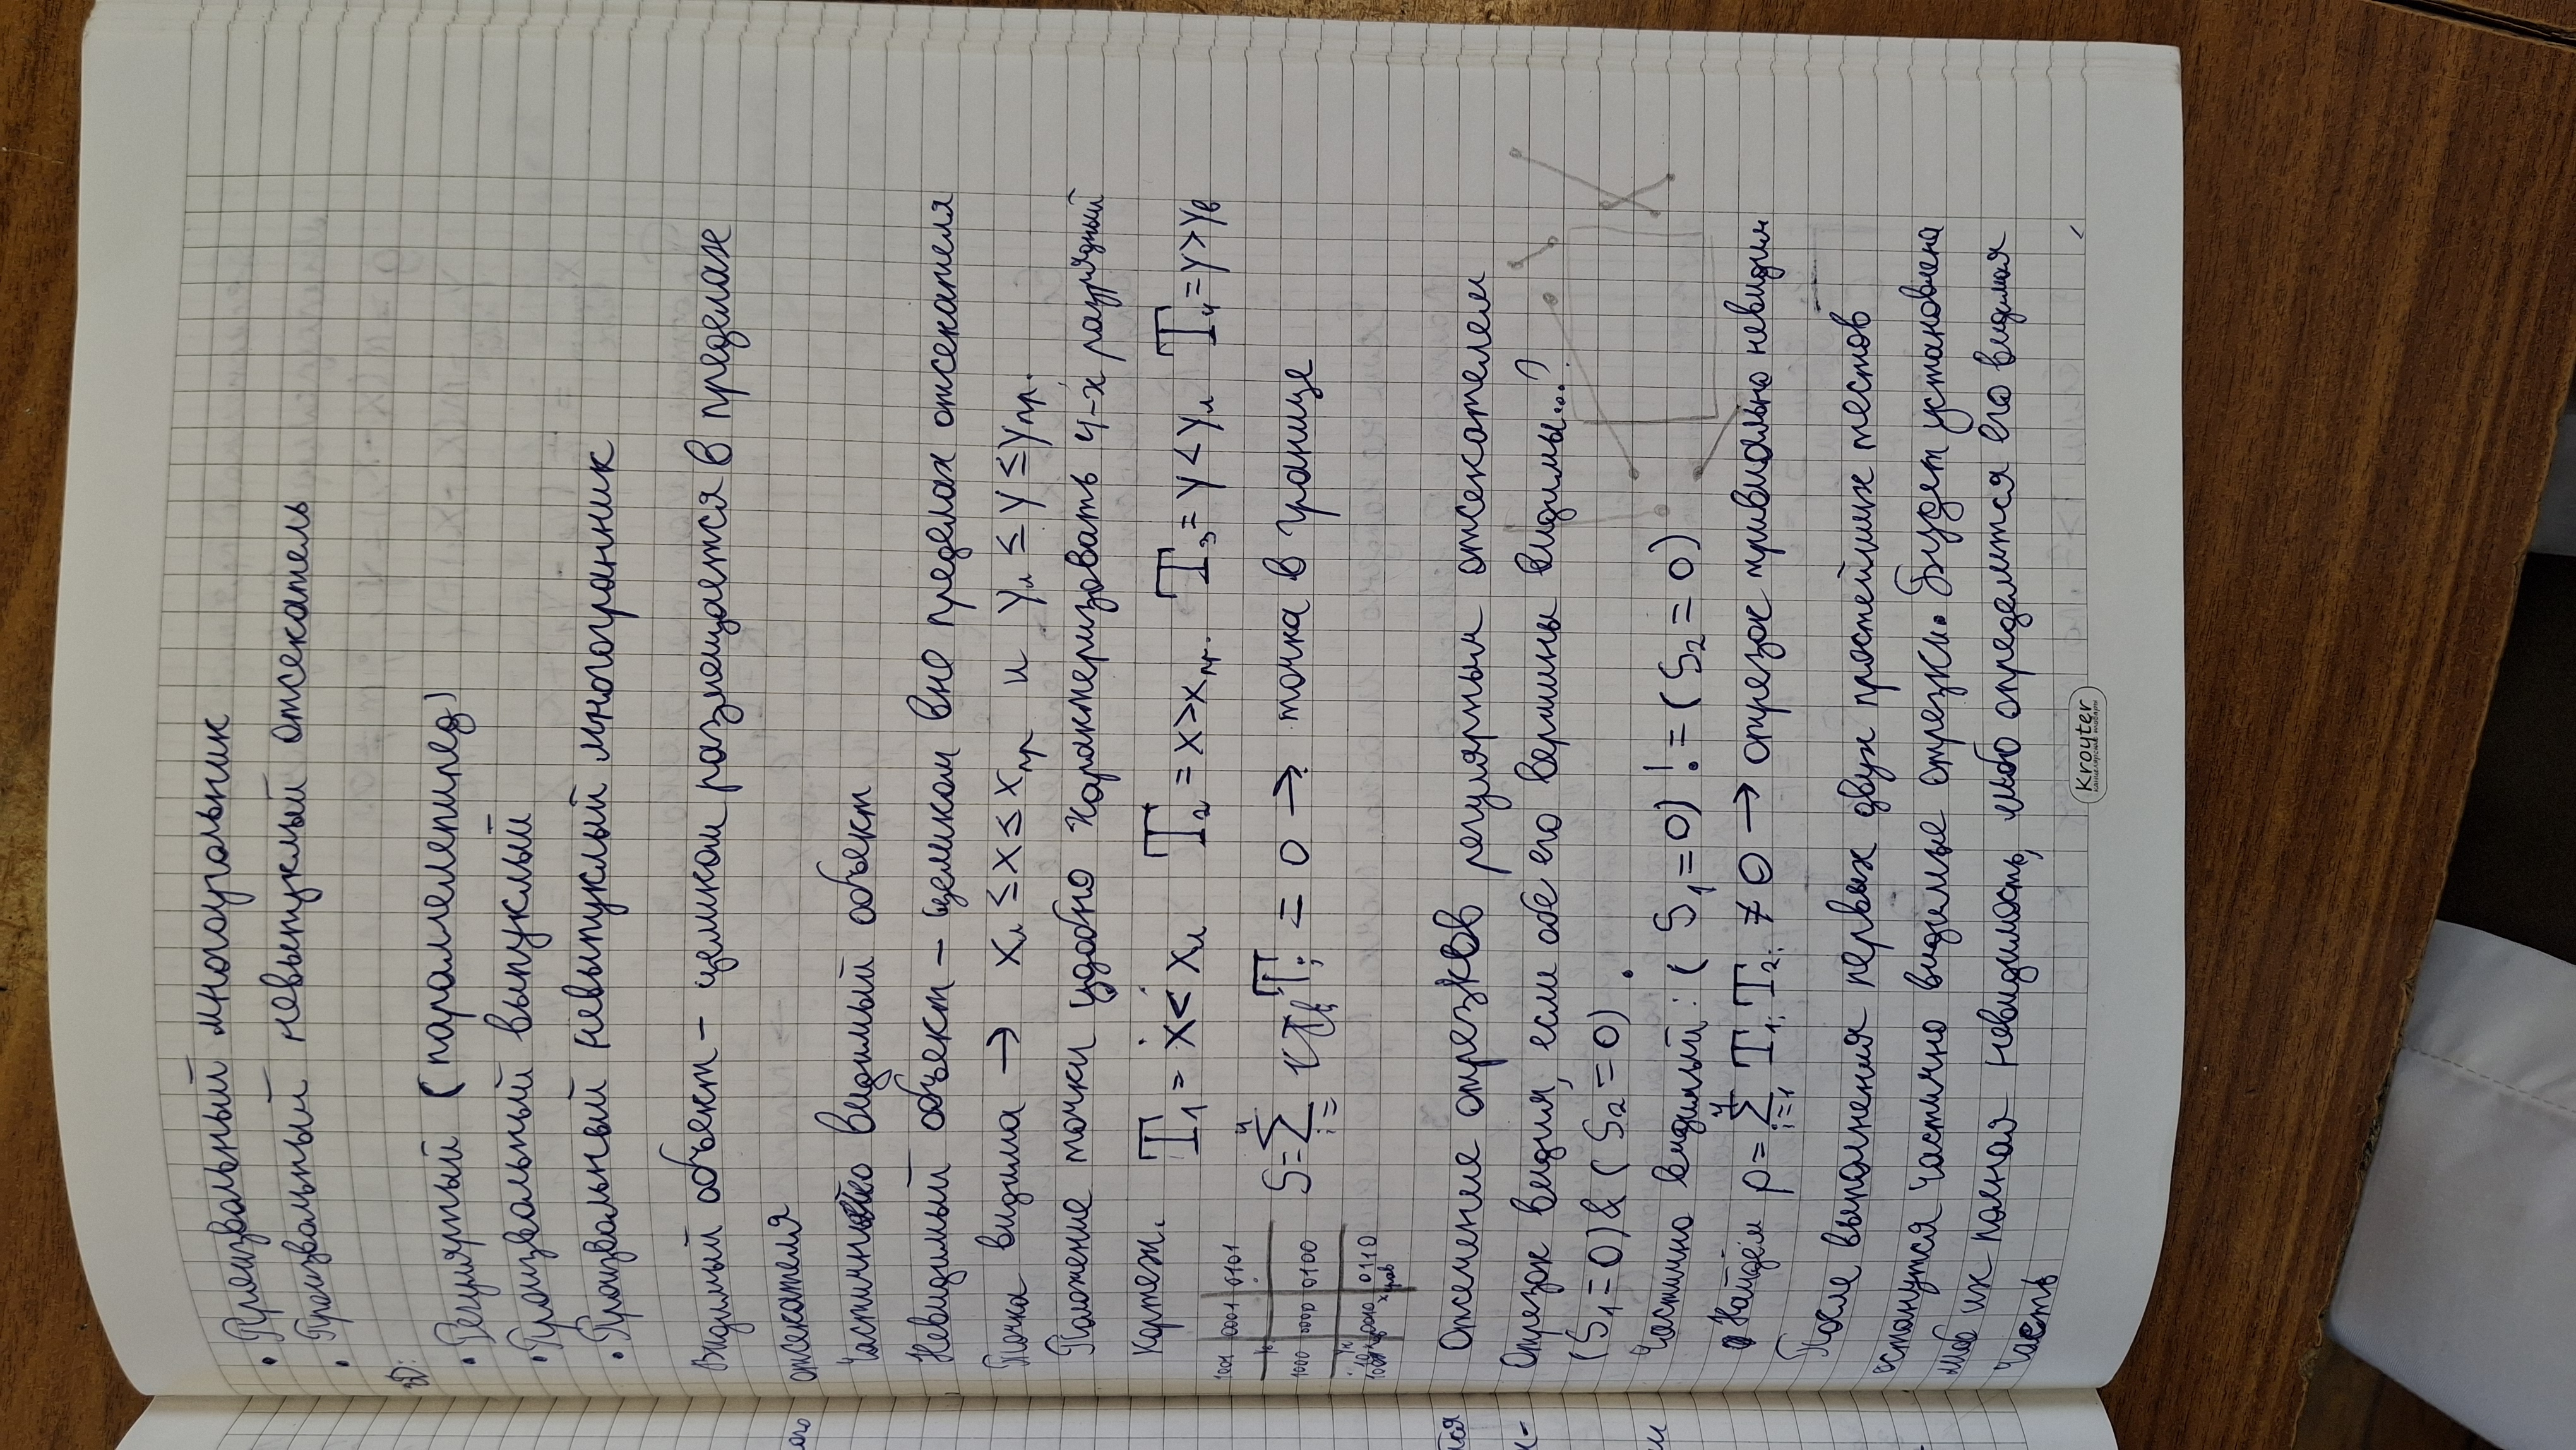 • Произвольный многоугольник
• Произвольный невыпуклый отсекатель
3D:
• Регулярный (параллелепипед)
• Произвольный выпуклый
• Произвольный невыпуклый многогранник
Видимый объект – целиком размещается в пределах
отсекателя
Частично видимый объект
Невидимый объект – целиком вне пределах отсекателя
Точка видима → xл ≤ x ≤ xпр и yл ≤ y ≤ yпр.
Положение точки удобно характеризовать 4-х разрядный
кортеж.
T1 = x < xл T2 = x > xпр. T3 = y < yл T4 = y > yв
1001 0001 0101
1000 0000 0100
0010 0110
S = Σ Ti = 0 → точка в границе
4
i =
Отсечение отрезков регулярным отсекателем
Отрезок видим, если обе его вершины видимы...?
(S1 = 0) & (S2 = 0).
Частично видимый: (S1 = 0) != (S2 = 0)
Найдём p = Σ T1i T2i ≠ 0 → отрезок тривиально невидим
4
i=1
После выполнения первых двух простейших тестов
останутся частично видимые отрезки. Будет установлена
либо их полная невидимость, либо определится его видимая
часть
Kroyter
канцелярские товары
ого
тся